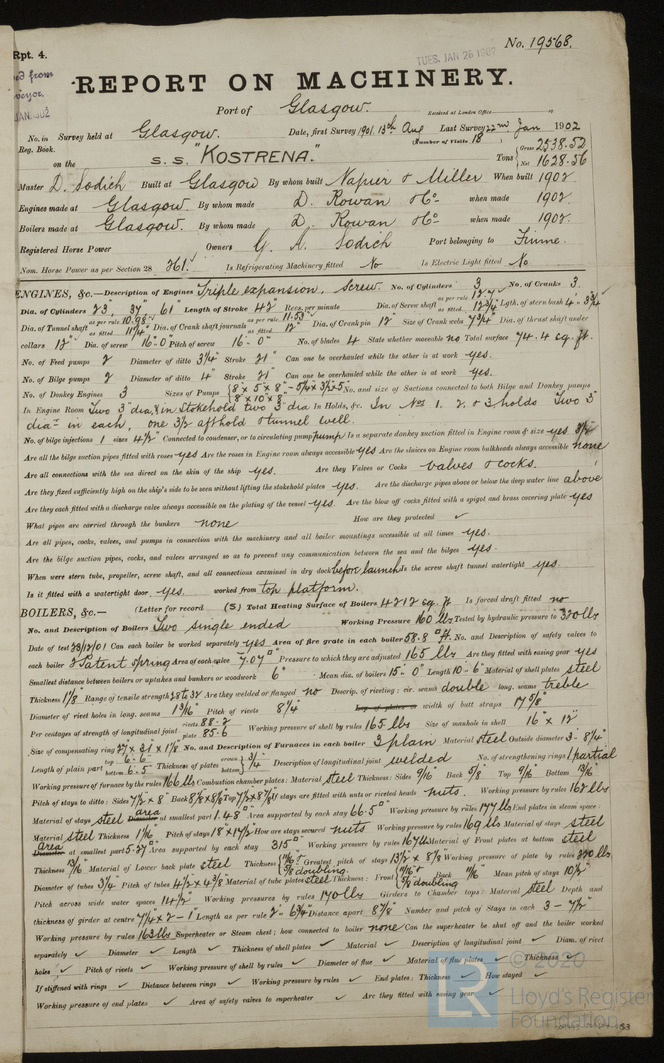 Rpt. 4.
No. 19568.
TUES. JAN 28 1902
REPORT ON MACHINERY.
Port of Glasgow.
Received at London Office
No. in Survey held at Glasgow. Date, first Survey 1901 13th Aug Last Survey 22nd Jan 1902
Reg. Book. (Number of Visits 18)
on the S.S. "KOSTRENA." Tons Gross 2538.52 Net 1628.56
Master D. Sodich Built at Glasgow By whom built Napier & Miller When built 1902
Engines made at Glasgow. By whom made D. Rowan & Co when made 1902.
Boilers made at Glasgow. By whom made D. Rowan & Co when made 1902.
Registered Horse Power Owners G. A. Sodich Port belonging to Fiume.
Nom. Horse Power as per Section 28 261. Is Refrigerating Machinery fitted No Is Electric Light fitted No
ENGINES, &c.—Description of Engines Triple expansion, Screw. No. of Cylinders 3 No. of Cranks 3.
Dia. of Cylinders 23, 37, 61 Length of Stroke 42 Revs. per minute Dia. of Screw shaft as per rule as fitted 12 3/4 Lgth. of stern bush 4'-3 3/4
Dia. of Tunnel shaft as per rule 10.98 as fitted 11 1/4 Dia. of Crank shaft journals as per rule 11.53 as fitted 12" Dia. of Crank pin 12" Size of Crank webs 7 3/4 Dia. of thrust shaft under
collars 12" Dia. of screw 16-0 Pitch of screw 16-0" No. of blades 4 State whether moveable no Total surface 74.4 sq. ft.
No. of Feed pumps 2 Diameter of ditto 3 1/4 Stroke 21" Can one be overhauled while the other is at work yes.
No. of Bilge pumps 2 Diameter of ditto 4" Stroke 21" Can one be overhauled while the other is at work yes.
No. of Donkey Engines 3 Sizes of Pumps 8 x 5 x 8 - 5 1/4 x 3 1/2 x 5 8 x 10 x 8 No. and size of Suctions connected to both Bilge and Donkey pumps
In Engine Room Two 3" dia, & in stokehold two 3" dia In Holds, &c. In Nos 1. 2 & 3 holds Two 3"
dia in each, one 3 1/2 aft hold & tunnel well.
No. of bilge injections 1 sizes 4 1/2" Connected to condenser, or to circulating pump pump Is a separate donkey suction fitted in Engine room & size yes 3 1/2
Are all the bilge suction pipes fitted with roses yes Are the roses in Engine room always accessible yes Are the sluices on Engine room bulkheads always accessible none
Are all connections with the sea direct on the skin of the ship yes. Are they Valves or Cocks valves & cocks.
Are they fixed sufficiently high on the ship's side to be seen without lifting the stokehold plates yes. Are the discharge pipes above or below the deep water line above
Are they each fitted with a discharge valve always accessible on the plating of the vessel yes. Are the blow off cocks fitted with a spigot and brass covering plate yes
What pipes are carried through the bunkers none How are they protected ✓
Are all pipes, cocks, valves, and pumps in connection with the machinery and all boiler mountings accessible at all times yes.
Are the bilge suction pipes, cocks, and valves arranged so as to prevent any communication between the sea and the bilges yes.
When were stern tube, propeller, screw shaft, and all connections examined in dry dock before launch Is the screw shaft tunnel watertight yes.
Is it fitted with a watertight door yes. worked from top platform.
BOILERS, &c.— (Letter for record (S) Total Heating Surface of Boilers 4212 sq. ft Is forced draft fitted no
No. and Description of Boilers Two single ended Working Pressure 160 lb Tested by hydraulic pressure to 320 lb
Date of test 23/12/01 Can each boiler be worked separately yes Area of fire grate in each boiler 58.8 sq. ft. No. and Description of safety valves to
each boiler 2 Patent Spring Area of each valve 7.07" Pressure to which they are adjusted 165 lb Are they fitted with easing gear yes
Smallest distance between boilers or uptakes and bunkers or woodwork 6" Mean dia. of boilers 15-0" Length 10-6" Material of shell plates steel
Thickness 1 1/8 Range of tensile strength 28 to 32 Are they welded or flanged no Descrip. of riveting: cir. seams double long. seams treble
Diameter of rivet holes in long. seams 1 3/16" Pitch of rivets 8 1/4 width of butt straps 17 5/8"
Per centages of strength of longitudinal joint rivets 88.2 plate 85.6 Working pressure of shell by rules 165 lbs Size of manhole in shell 16" x 12"
Size of compensating ring 27 x 31 x 1 1/8 No. and Description of Furnaces in each boiler 3 plain Material steel Outside diameter 3-8 1/4"
Length of plain part top 6-6" bottom 6-5" Thickness of plates crown bottom 3/4 Description of longitudinal joint welded No. of strengthening rings 1 partial
Working pressure of furnace by the rules 166 lb Combustion chamber plates: Material steel Thickness: Sides 9/16 Back 9/16 Top 9/16 Bottom 13/16
Pitch of stays to ditto: Sides 7 1/2 x 8" Back 8 1/8 x 8 1/8 Top 7 1/2 x 8 7/8 If stays are fitted with nuts or riveted heads nuts. Working pressure by rules 162 lb
Material of stays steel area at smallest part 1.48" Area supported by each stay 66.5" Working pressure by rules 177 lb End plates in steam space:
Material steel Thickness 1 1/16" Pitch of stays 18" x 17 1/2 How are stays secured nuts Working pressure by rules 169 lb Material of stays steel
area at smallest part 5.27" Area supported by each stay 315" Working pressure by rules 167 lb Material of Front plates at bottom steel
Thickness 13/16 Material of Lower back plate steel Thickness 5/8 doubling Greatest pitch of stays 13 1/2 x 8 1/8 Working pressure of plate by rules 320 lb
Diameter of tubes 3 1/4 Pitch of tubes 4 1/2 x 4 3/8 Material of tube plates steel Thickness: Front 5/8 doubling Back 11/16 Mean pitch of stays 10 1/2
Pitch across wide water spaces 14 1/2" Working pressures by rules 170 lb Girders to Chamber tops: Material steel Depth and
thickness of girder at centre 7 1/4 x 2-1" Length as per rule 2-6 3/4 Distance apart 8 7/8 Number and pitch of Stays in each 3-7 1/2"
Working pressure by rules 163 lb Superheater or Steam chest; how connected to boiler none Can the superheater be shut off and the boiler worked
separately ✓ Diameter ✓ Length ✓ Thickness of shell plates ✓ Material ✓ Description of longitudinal joint ✓ Diam. of rivet
holes ✓ Pitch of rivets ✓ Working pressure of shell by rules ✓ Diameter of flue ✓ Material of flue plates ✓ Thickness ✓
If stiffened with rings ✓ Distance between rings ✓ Working pressure by rules ✓ End plates: Thickness ✓ How stayed ✓
Working pressure of end plates ✓ Area of safety valves to superheater ✓ Are they fitted with easing gear ✓
© 2020
Lloyd's Register
Foundation